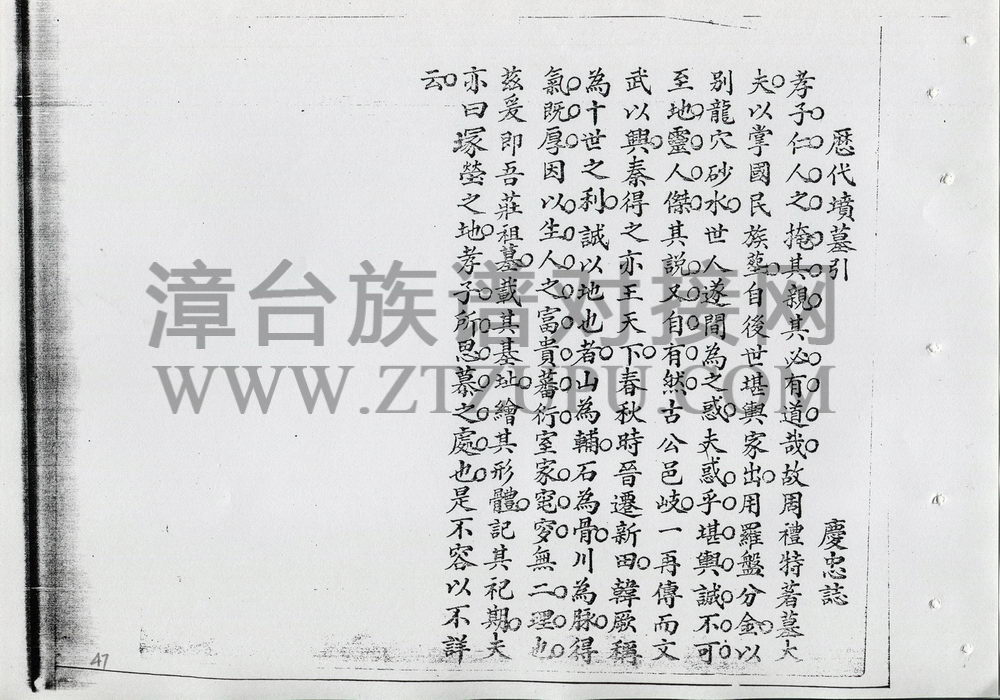 歷代墳墓引
慶忠誌
孝子仁人之掩其親其必有道哉故周禮特著墓大
夫以掌國民族墓自後世堪輿家出用羅盤分金以
別龍穴砂水世人遂間為之惑夫惑乎堪輿誠不可
至地靈人傑其説又自有然古公邑岐一再傳而文
武以興秦得之亦王天下春秋時晉遷新田韓厥稱
為十世之利誠以地也者山為輔石為骨川為脉得
氣既厚因以生人之富貴蕃衍室家窀穸無二理也
茲爰即吾莊祖墓載其基址繪其形體記其祀期夫
亦曰塚塋之地孝子所思慕之處也是不容以不詳
云
漳台族谱对接网
WWW.ZTZUPU.COM
47